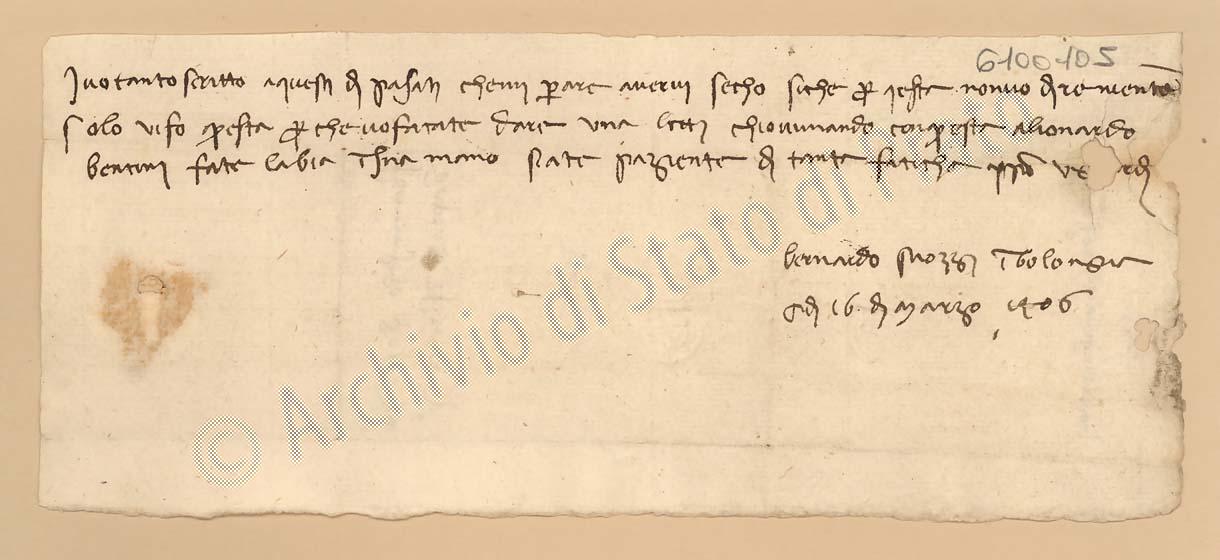 6100405
Ivo tanto scritto a questi dì pasati che mi pare avervi secho siche per questa non vo dire
solo vi fo questa perche vo facate dare una chio vi mando con questa a lionardo
bentini fate labia in sua mano siate paziente di tante fatiche
bernardo in bologna
adì 16 di marzo 1406
© Archivio di Stato di Prato